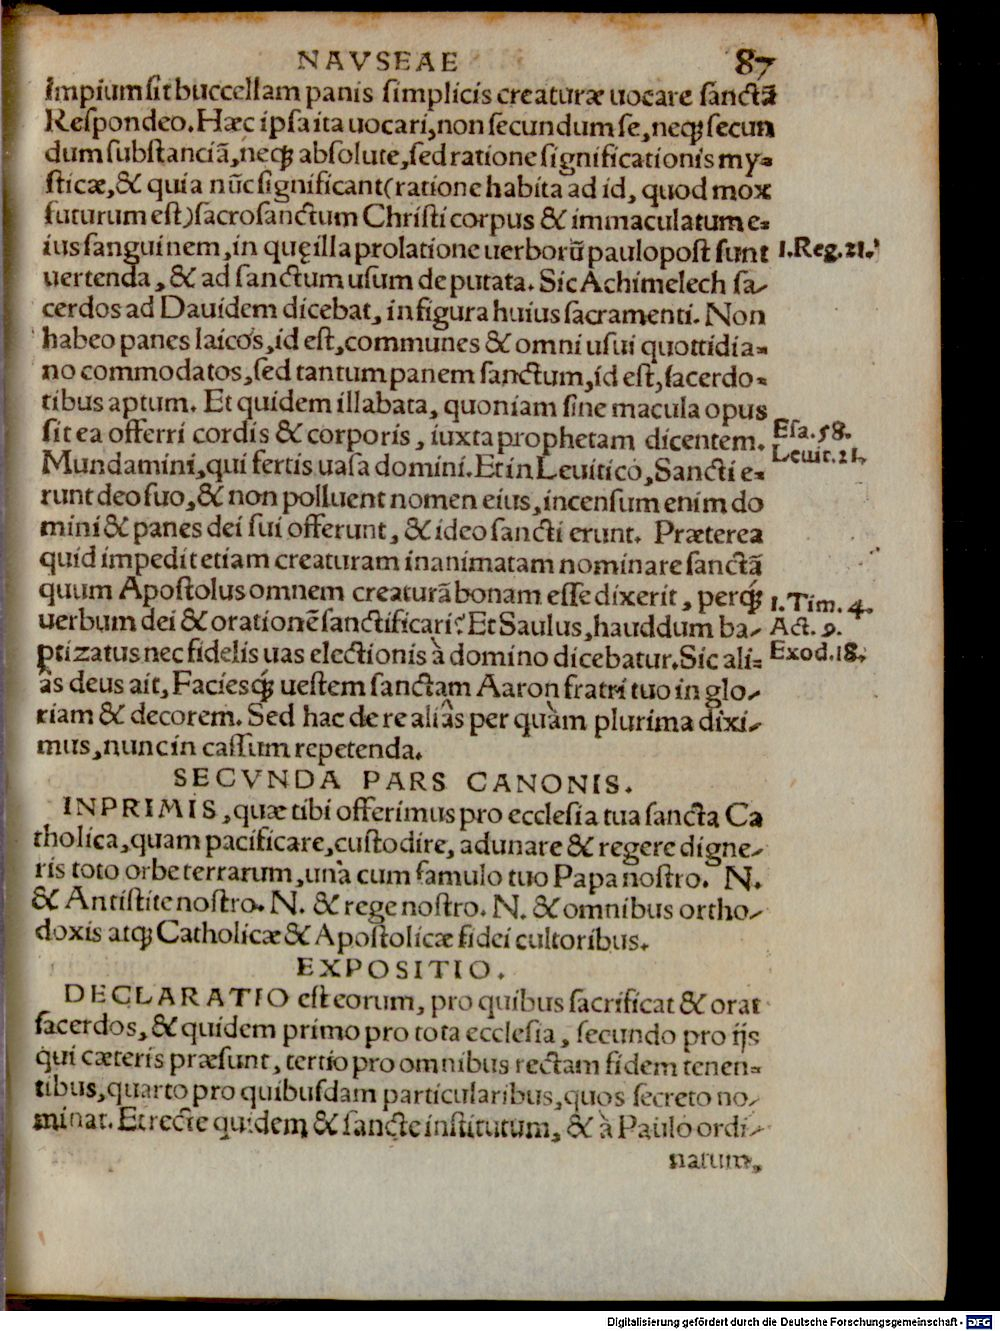 NAVSEAE 87
impium sit buccellam panis simplicis creaturæ uocare sanctã
Respondeo. Hæc ipsa ita uocari, non secundum se, neqꝫ secun
dum substanciã, neqꝫ absolute, sed ratione significationis my-
sticæ, & quia nũc significant (ratione habita ad id, quod mox
futurum est) sacrosanctum Christi corpus & immaculatum e-
ius sanguinem, in quę illa prolatione uerborũ paulopost sunt
1. Reg. 21.
uertenda, & ad sanctum usum deputata. Sic Achimelech sa-
cerdos ad Dauidem dicebat, in figura huius sacramenti. Non
habeo panes laicos, id est, communes & omni usui quottidia-
no commodatos, sed tantum panem sanctum, id est, sacerdo-
tibus aptum. Et quidem illabata, quoniam sine macula opus
sit ea offerri cordis & corporis, iuxta prophetam dicentem.
Esa. 58.
Leuit. 21.
Mundamini, qui fertis uasa domini. Et in Leuitico, Sancti e-
runt deo suo, & non polluent nomen eius, incensum enim do
mini & panes dei sui offerunt, & ideo sancti erunt. Præterea
quid impedit etiam creaturam inanimatam nominare sanctã
quum Apostolus omnem creaturã bonam esse dixerit, perqꝫ
1. Tim. 4.
uerbum dei & orationẽ sanctificari? Et Saulus, hauddum ba-
Act. 9.
ptizatus nec fidelis uas electionis à domino dicebatur. Sic ali-
Exod. 18.
âs deus ait, Faciesqꝫ uestem sanctam Aaron fratri tuo in glo-
riam & decorem. Sed hac de re aliâs per quàm plurima dixi-
mus, nunc in cassum repetenda.
SECVNDA PARS CANONIS.
INPRIMIS, quæ tibi offerimus pro ecclesia tua sancta Ca
tholica, quam pacificare, custodire, adunare & regere digne-
ris toto orbe terrarum, unà cum famulo tuo Papa nostro. N.
& Antistite nostro. N. & rege nostro. N. & omnibus ortho-
doxis atqꝫ Catholicæ & Apostolicæ fidei cultoribus.
EXPOSITIO.
DECLARATIO est eorum, pro quibus sacrificat & orat
sacerdos, & quidem primo pro tota ecclesia, secundo pro ijs
qui cæteris præsunt, tertio pro omnibus rectam fidem tenen-
tibus, quarto pro quibusdam particularibus, quos secreto no-
minat. Et recte quidem & sancte institutum, & à Paulo ordi-
natum,
Digitalisierung gefördert durch die Deutsche Forschungsgemeinschaft - DFG